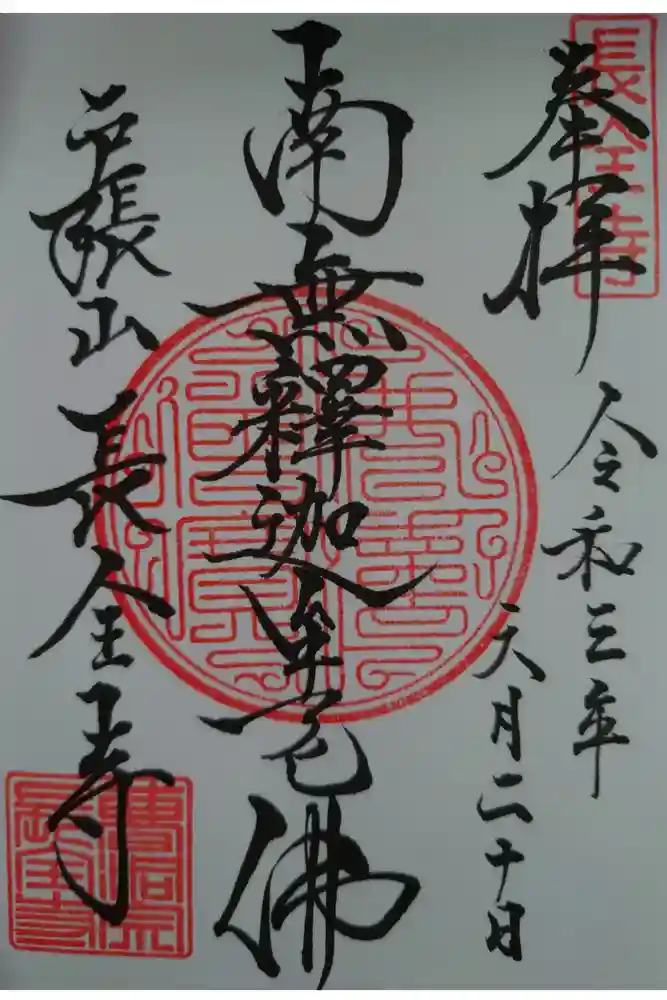 長全寺
奉拝
令和三年
六月二十日
南無釋迦牟尼佛
戸張山 長全寺
曹洞宗
長全寺